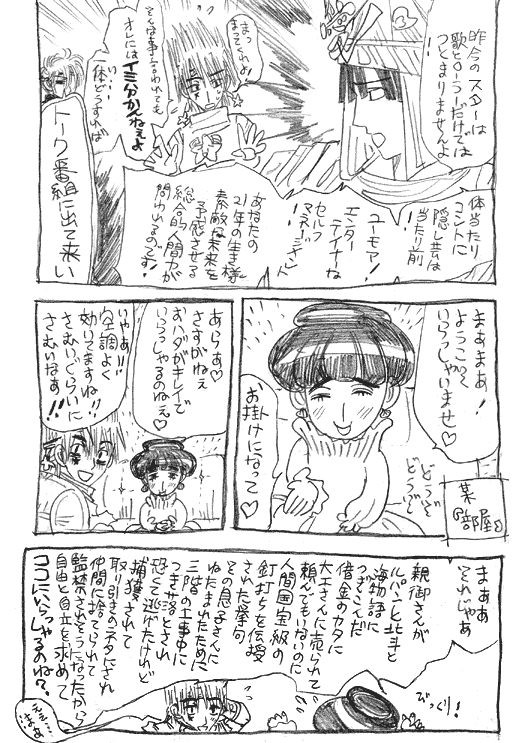 昨今のスターは
歌とのーラーだけでは
つとまりませんよ
まっ
まってくれよ!
そんな事言われても
オレには
イミ分かんねえよ
一体どうすれば
トーク番組に出て来い
体当たり
コントに
隠し芸は
当たり前
!!
ユーモア!
エンター
テイナーな
セルフ
マネージメント!
あなたの
21年の生き様
素敵な未来を
予感させる
総合的人間力が
問われるのです!
まあまあ!
ようこそ
いらっしゃいませ♡
お掛けになって♡
どうぞ
どうぞ
某
〇部屋
あらぁ♡
さすがねぇ
おハダがキレイで
いらっしゃるのねぇ♡
いやあ!!
空調よく
効いてますね!
さむいぐらいに
さむいなあ!!
まぁぁ
それじゃあ
親御さんが
ルパンと北斗と
海物語に
つぎこんだ
借金のカタに
大工さんに売られて
頼んでもいないのに
人間国宝級の
釘打ちを伝授
された挙句
その息子さんに
ねたまれたために
三階の工事中に
つき落とされ
恐くて逃げたけれど
捕獲されて
取り引きのネタにされ
仲間に捨てられて
監禁されそうになったから
自由と自立を求めて
ココにいらっしゃるのね?
びっくり!
ええ…
まあ